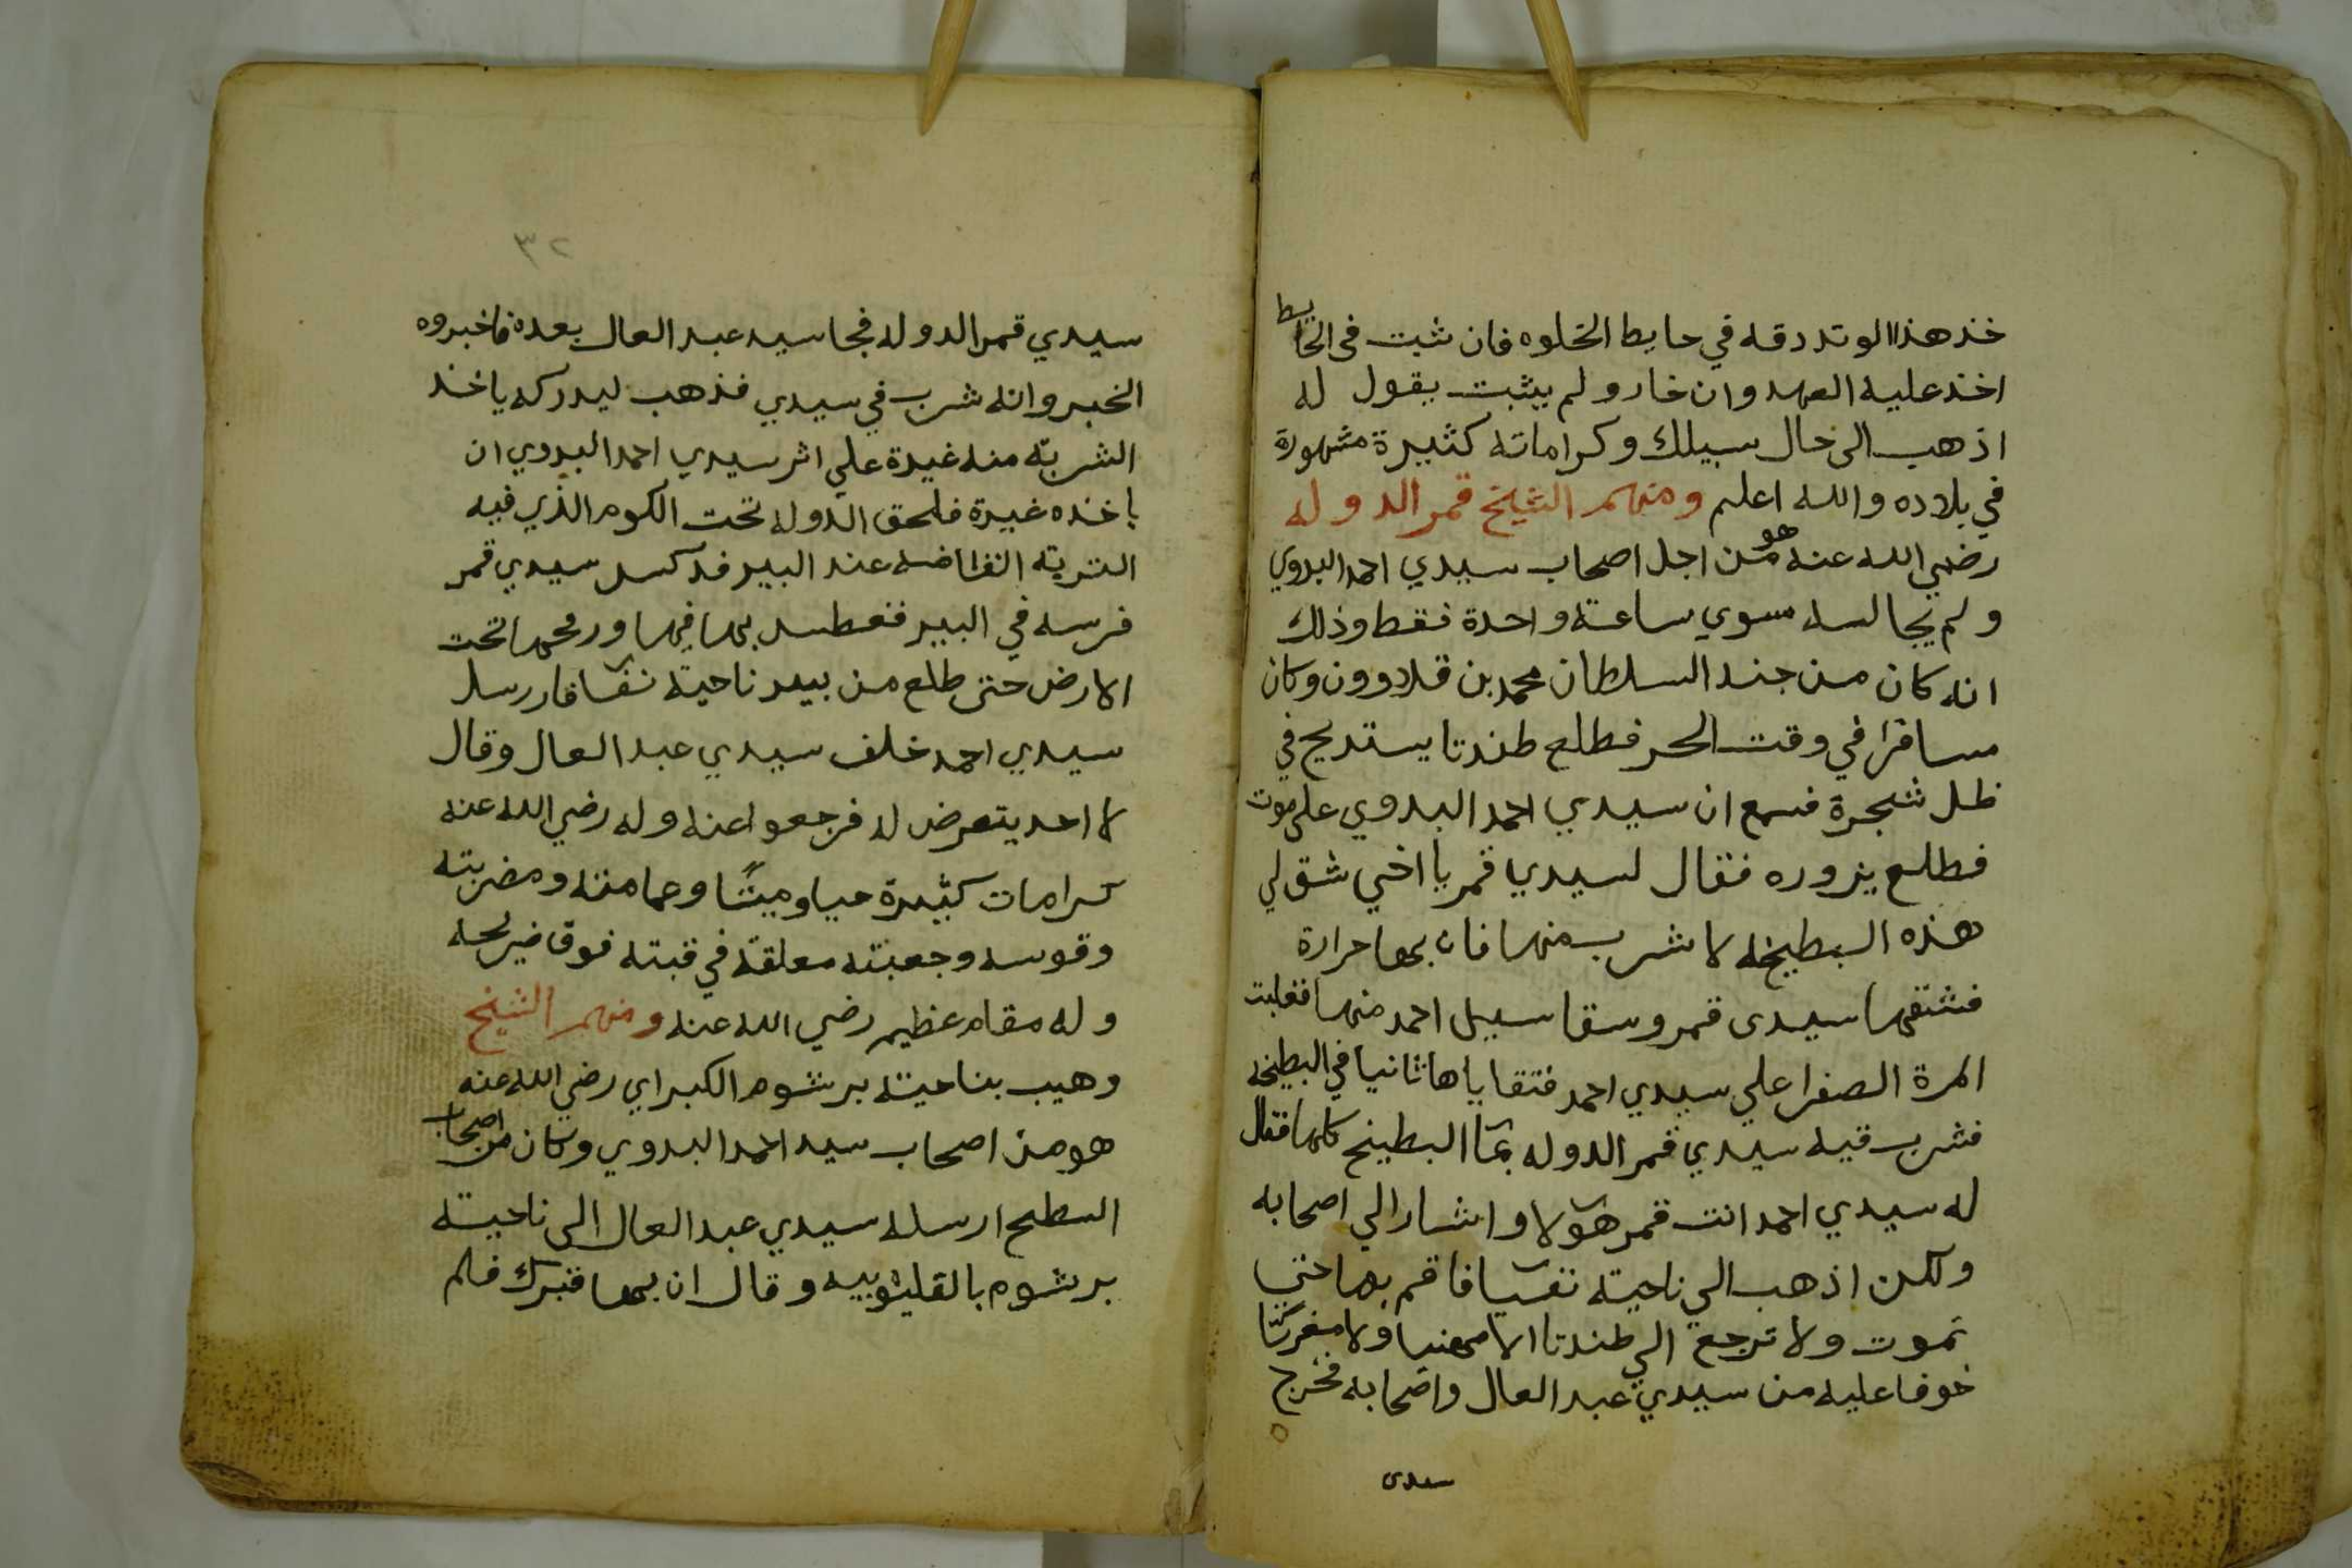 خذ هذا الوتد دقه في حايط الخلوه فان ثبت في الحايط
اخذ عليه العهد وان خار ولم يثبت يقول له
اذهب الى حال سبيلك وكراماته كثيرة مشهورة
في بلاده والله اعلم ومنهم الشيخ قمر الدوله
رضي الله عنه هو من اجل اصحاب سيدي احمد البدوي
ولم يجالسه سوي ساعة واحدة فقط وذلك
انه كان من جند السلطان محمد بن قلاوون وكان
مسافرا في وقت الحر فطلع طندتا يستريح في
ظل شجرة فسمع ان سيدي احمد البدوي على موت
فطلع يزوره فقال لسيدي قمر يا اخي شق لي
هذه البطيخه لاشرب منها فان بها حرارة
فشقها سيدى قمر وسقا سيل احمد منها فغلبت
المرة الصفرا علي سيدي احمد فتقاياها ثانيا في البطيخه
فشرب قيه سيدي قمر الدوله بمآ البطيخ كلها فقال
له سيدي احمد انت قمر هولا واشار الي اصحابه
ولكن اذهب الي ناحية نفيا فاقم بها حتي
تموت ولا ترجع الي طندتا لا معنا ولا مفركا
خوفا عليه من سيدي عبد العال واصحابه فخرج
سيدى
٣٢
سيدي قمر الدوله فجا سيد عبد العال بعده فاخبروه
الخبر وانه شرب في سيدي فذهب ليدركه ياخذ
الشربة منه غيرة علي اثر سيدي احمد البدوي ان
ياخذه غيرة فلحق الدوله تحت الكوم الذي فيه
التربة النفاضه عند البير فدكسل سيدي قمر
فرسه في البير فغطس بها فيها ورمحها تحت
الارض حتى طلع من بير ناحية نفيا فارسل
سيدي احمد خلف سيدي عبد العال وقال
لا احد يتعرض له فرجعوا عنه وله رضي الله عنه
كرامات كثيرة حيا وميتًا وعمامته ومضربته
وقوسه وجعبته معلقة في قبته فوق ضريحه
وله مقام عظيم رضي الله عنه ومنهم الشيخ
وهيب بناحية برشوم الكبراي رضي الله عنه
هو من اصحاب سيد احمد البدوي وكان من اصحاب
السطح ارسله سيدي عبد العال الى ناحية
برشوم بالقليوبيه وقال ان بها قبرك فلم